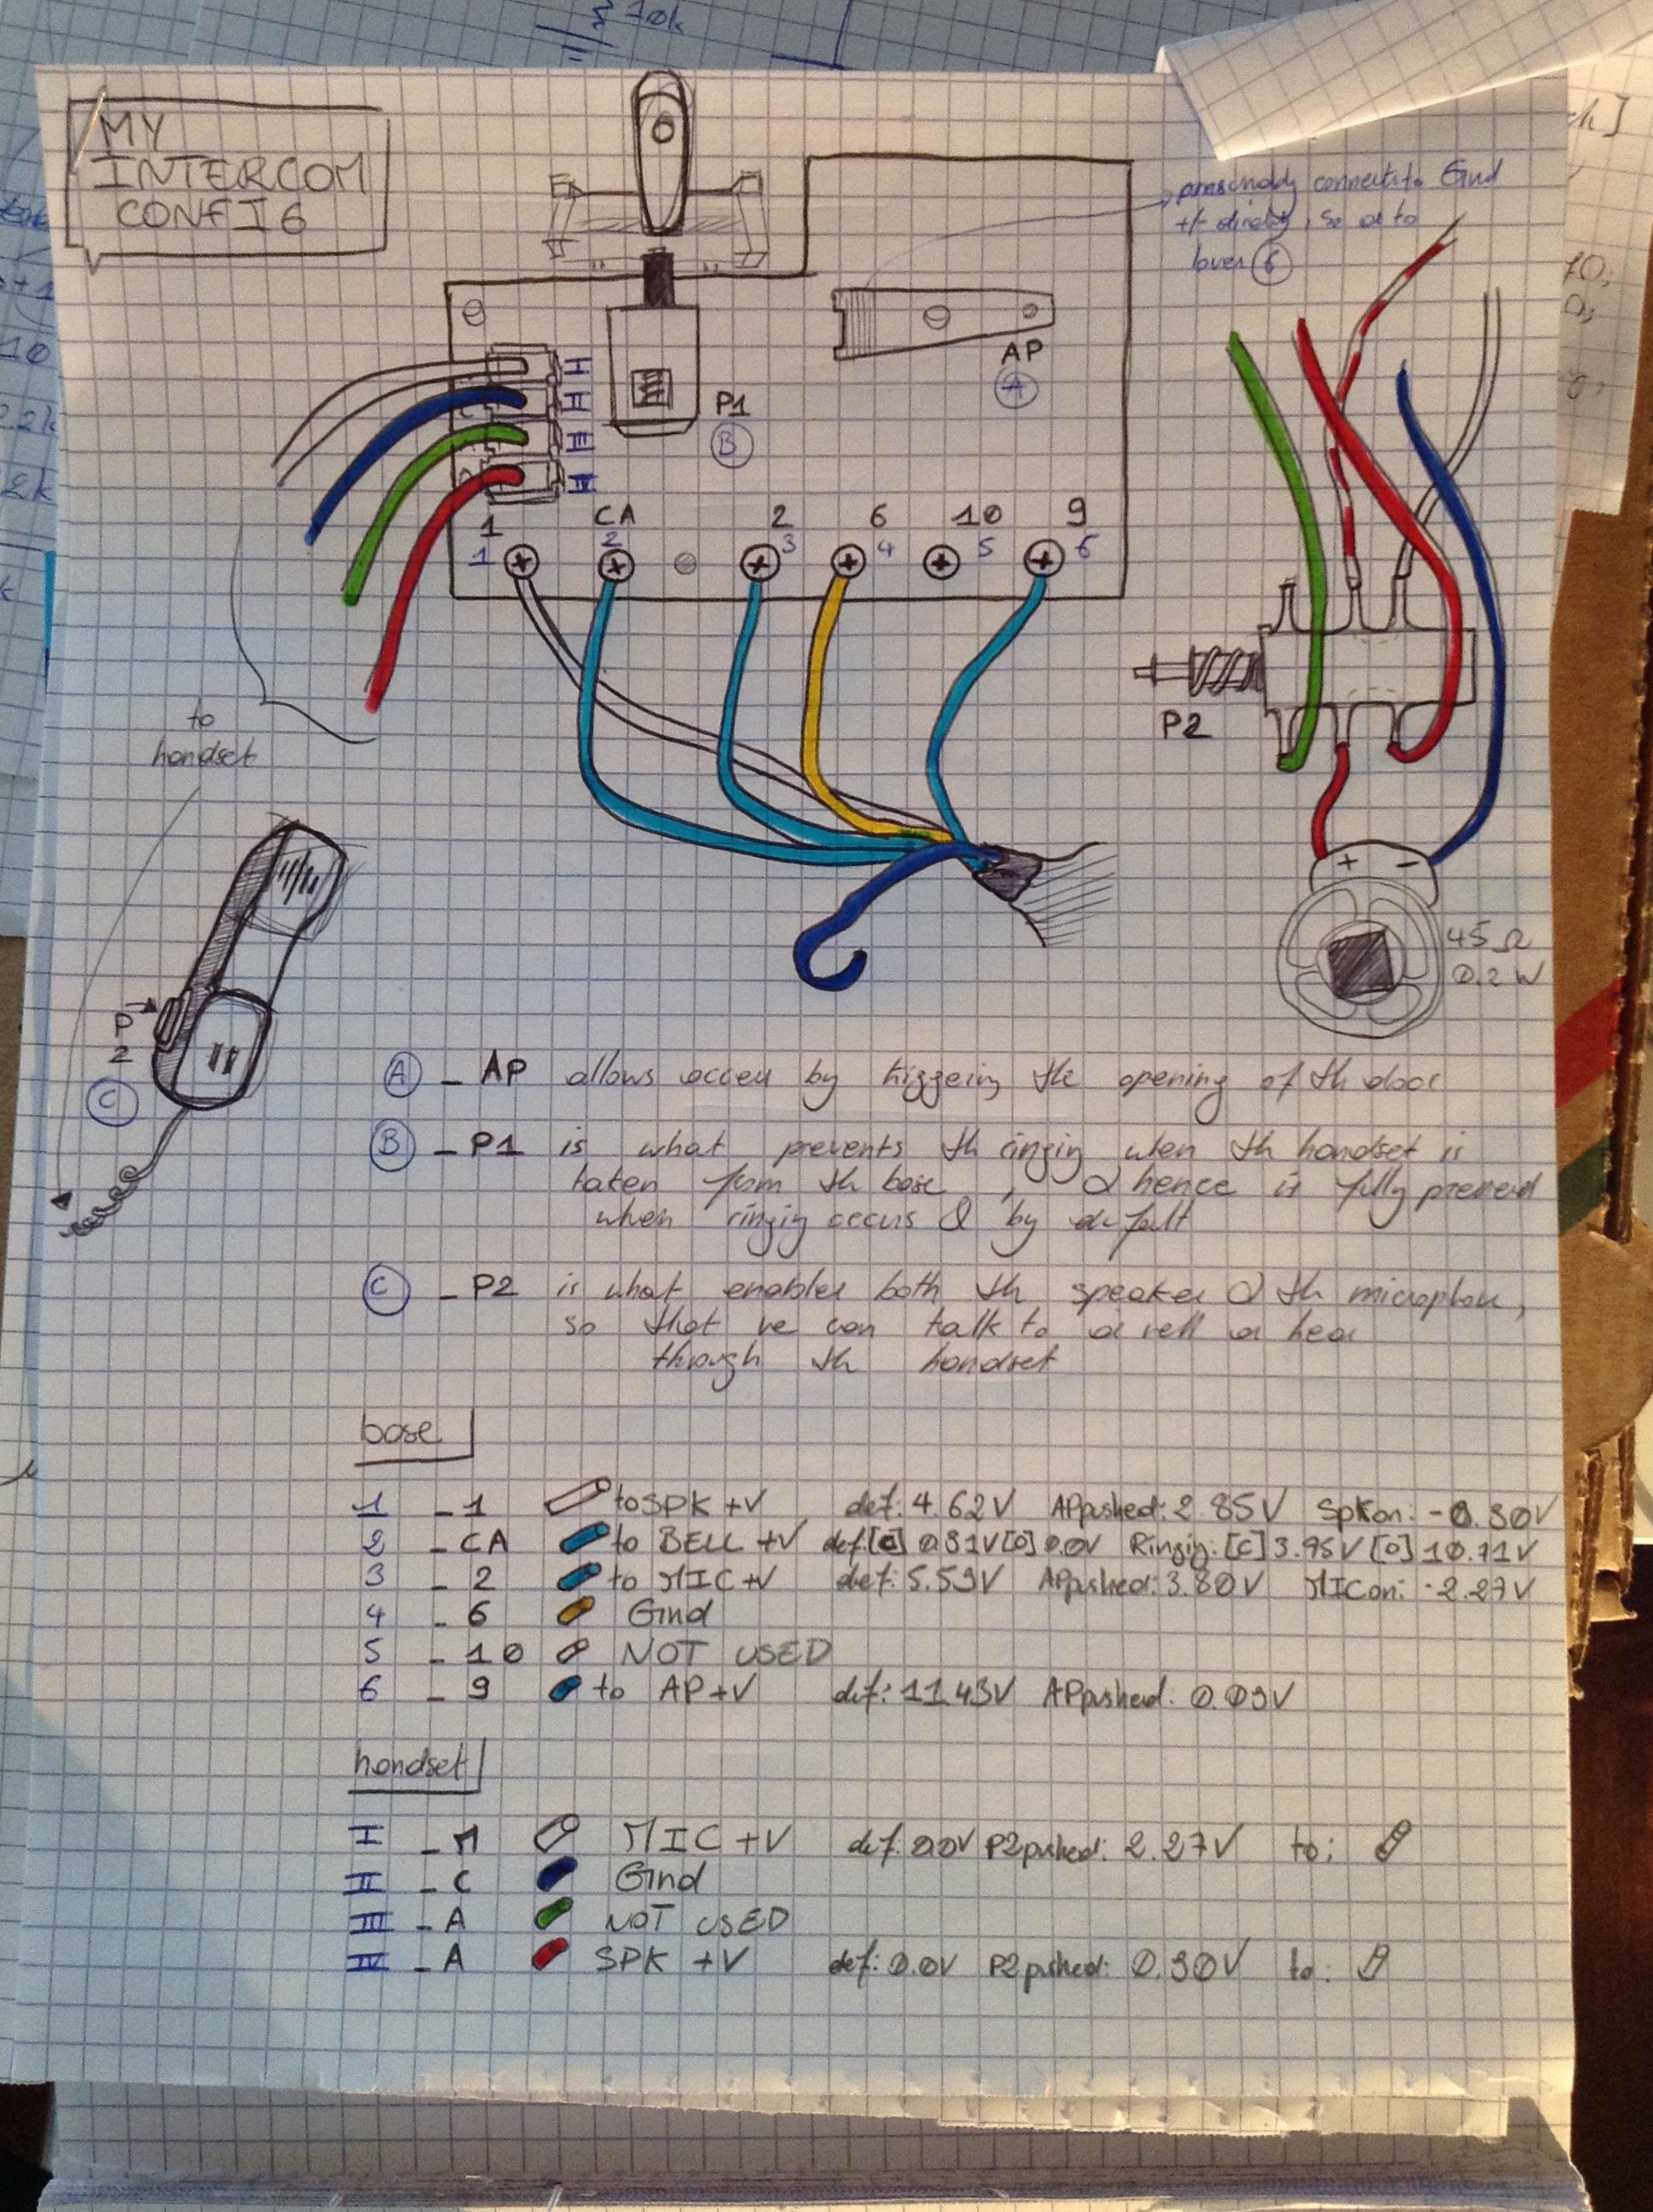 10k
MY
INTERCOM
CONFIG
presumably connects to Gnd
+/- directly, so as to
lower 6
I
II
III
IV
P1
B
AP
A
1 CA 2 6 10 9
1 2 3 4 5 6
P2
to
handset
P
2
C
+ -
45 Ω
0.2 W
A _ AP allows access by triggering the opening of th door
B _ P1 is what prevents th ringing when th handset is
taken from th base, & hence is fully pressed
when ringing occurs & by default
C _ P2 is what enables both th speaker & th microphone,
so that we can talk to as well as hear
through th handset
base
1 _ 1 to SPK +V def: 4.62V AP pushed: 2.85V Spk on: -0.90V
2 _ CA to BELL +V def: [C] 0.91V [O] 0.0V Ringing: [C] 3.95V [O] 10.71V
3 _ 2 to MIC +V def: 5.59V AP pushed: 3.80V MIC on: -2.27V
4 _ 6 Gnd
5 _ 10 NOT USED
6 _ 9 to AP +V def: 11.43V AP pushed: 0.09V
handset
I _ M MIC +V def: 0.0V P2 pushed: 2.27V to:
II _ C Gnd
III _ A NOT USED
IV _ A SPK +V def: 0.0V P2 pushed: 0.90V to: